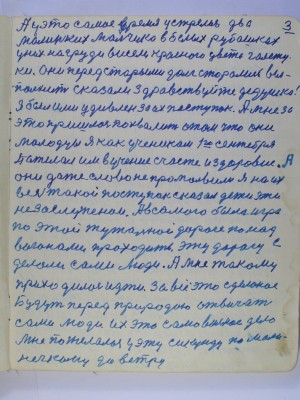 3
А у это самое время устрель два
маленьких мальчика в белых рубашках
у них на груди висел красного цвета галсту
ки. Они перед старыми долг старались вы-
полнить сказали Здравствуйте дедушка!
Я был ими удивлен за их поступок. А мне за
это пришлось похвалить о том что они
молодцы я как ученикам 1го сентября
Пожелал им в учение счастье и здоровие. А
они даже слово не промолвили я на их
весь такой поступок сказал дети эти
не заслуженом. А в самого была игра
по этой дороге по над
вагонами проходить эту дорагу с-
делали сами люди. А мне такому
приходилось идти. За всё это сделаное
Будут перед природою отвичать
сами люди их это само вечное дело
Мне пожелалос у эту секунду по мале-
нечкому до ветру